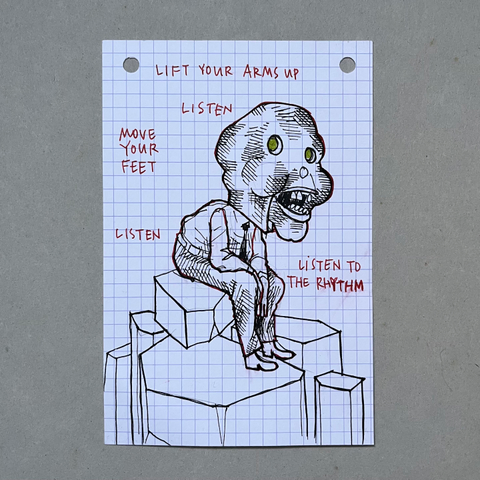 LIFT YOUR ARMS UP
LISTEN
MOVE
YOUR
FEET
LISTEN
LISTEN TO
THE RHYTHM